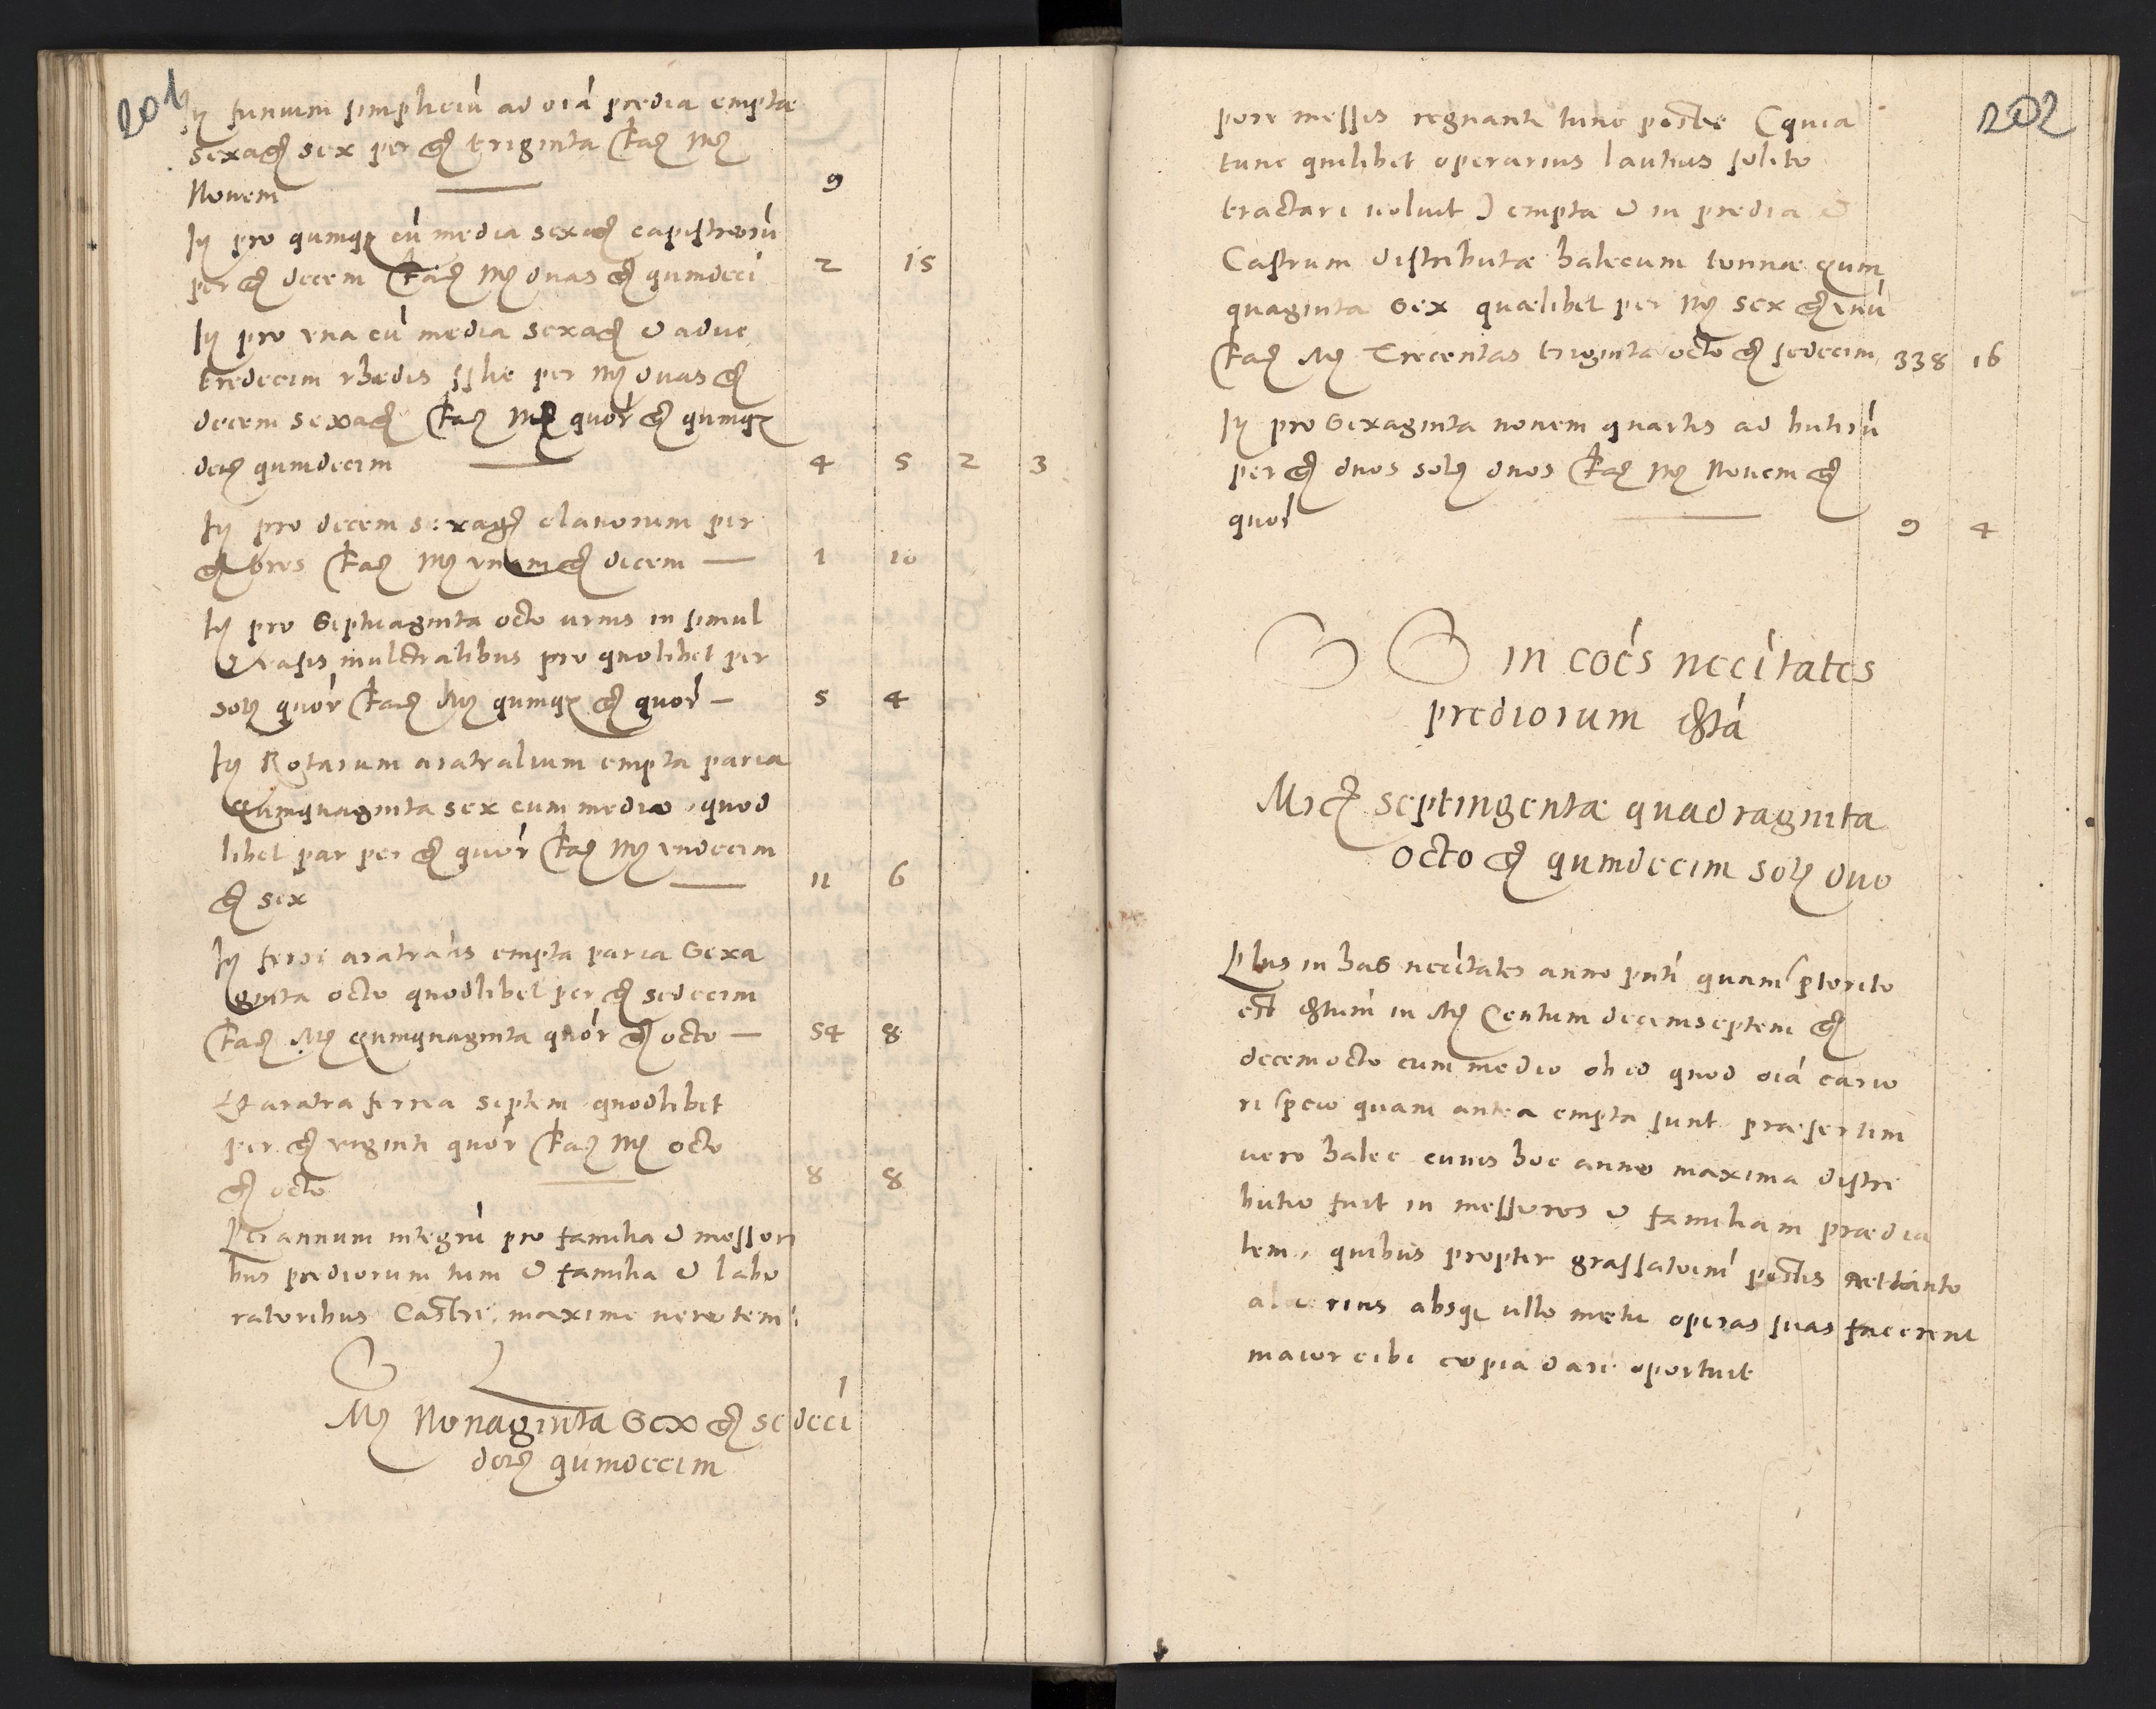 201
It funium simpliciu ad oia predia emptæ
sexag sex per gr triginta fac mr
Nouem 9
It pro quinq cu media sexag capistroru
per gr decem fac mr duas gr quindeci 2 15
It pro vna cu media sexag et adue
tredecim rhedis per mr duas gr
decem sexag fac mr quor gr quinq
den quindecim 4 5 2 3
It pro decem sexag clauorum per
gr tres fac mr vnam gr decem 1 10
It pro Septuaginta octo urnis in simul
et vasis mulctralibus pro quolibet per
sol quor fac mr quinq gr quor 5 4
It Rotarum aratralium empta paria
Quinquaginta sex cum medio quod
libet par per gr quor fac mr vndecim
gr sex 11 6
It ferri aratralis empta paria Sexa
ginta octo quodlibet per gr sedecim
fac mr quinquaginta quor gr octo 54 8
Et aratra ferrea septem quodlibet
per gr viginti quor fac mr octo
gr octo 8 8
Per annum integru pro familia et messori
bus prediorum tum et familia et labo
ratoribus Castri, maxime vero tem
Mr Nonaginta Sex gr sedeci
den quindecim
202
pore messis regnante tunc peste (quia
tunc quilibet operarius lautius solito
tractari uoluit) empta et in predia et
Castrum distributæ halecum tonnæ quin
quaginta Sex quælibet per mr sex gr vnu
fac mr Trecentas triginta octo gr sedecim 338 16
It pro Sexaginta nouem quartis ad butiru
per gr duos sol duos fac mr Nouem gr
quor 9 4
in coes necitates
prediorum exta
Mrc septingentæ quadraginta
octo gr quindecim sol duo
Plus in has necitates anno pnti quam pterito
est extum in mr Centum decemseptem gr
decemocto cum medio ob id quod oia cario
ri pcio quam antea empta sunt præsertim
vero halec cuius hoc anno maxima distri
butio fuit in messores et familiam prædia
lem, quibus propter grassatoem pestis vel tanto
alacrius absq ullo metu operas suas facerent
maior cibi copia dari oportuit